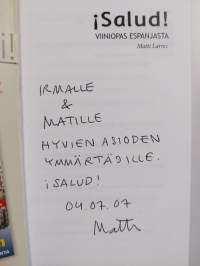 ¡Salud!
VIINIOPAS ESPANJASTA
Matti Larres
IRMALLE
&
MATILLE
HYVIEN ASIOIDEN
YMMÄRTÄJILLE.
¡SALUD!
04.07.07
Matti